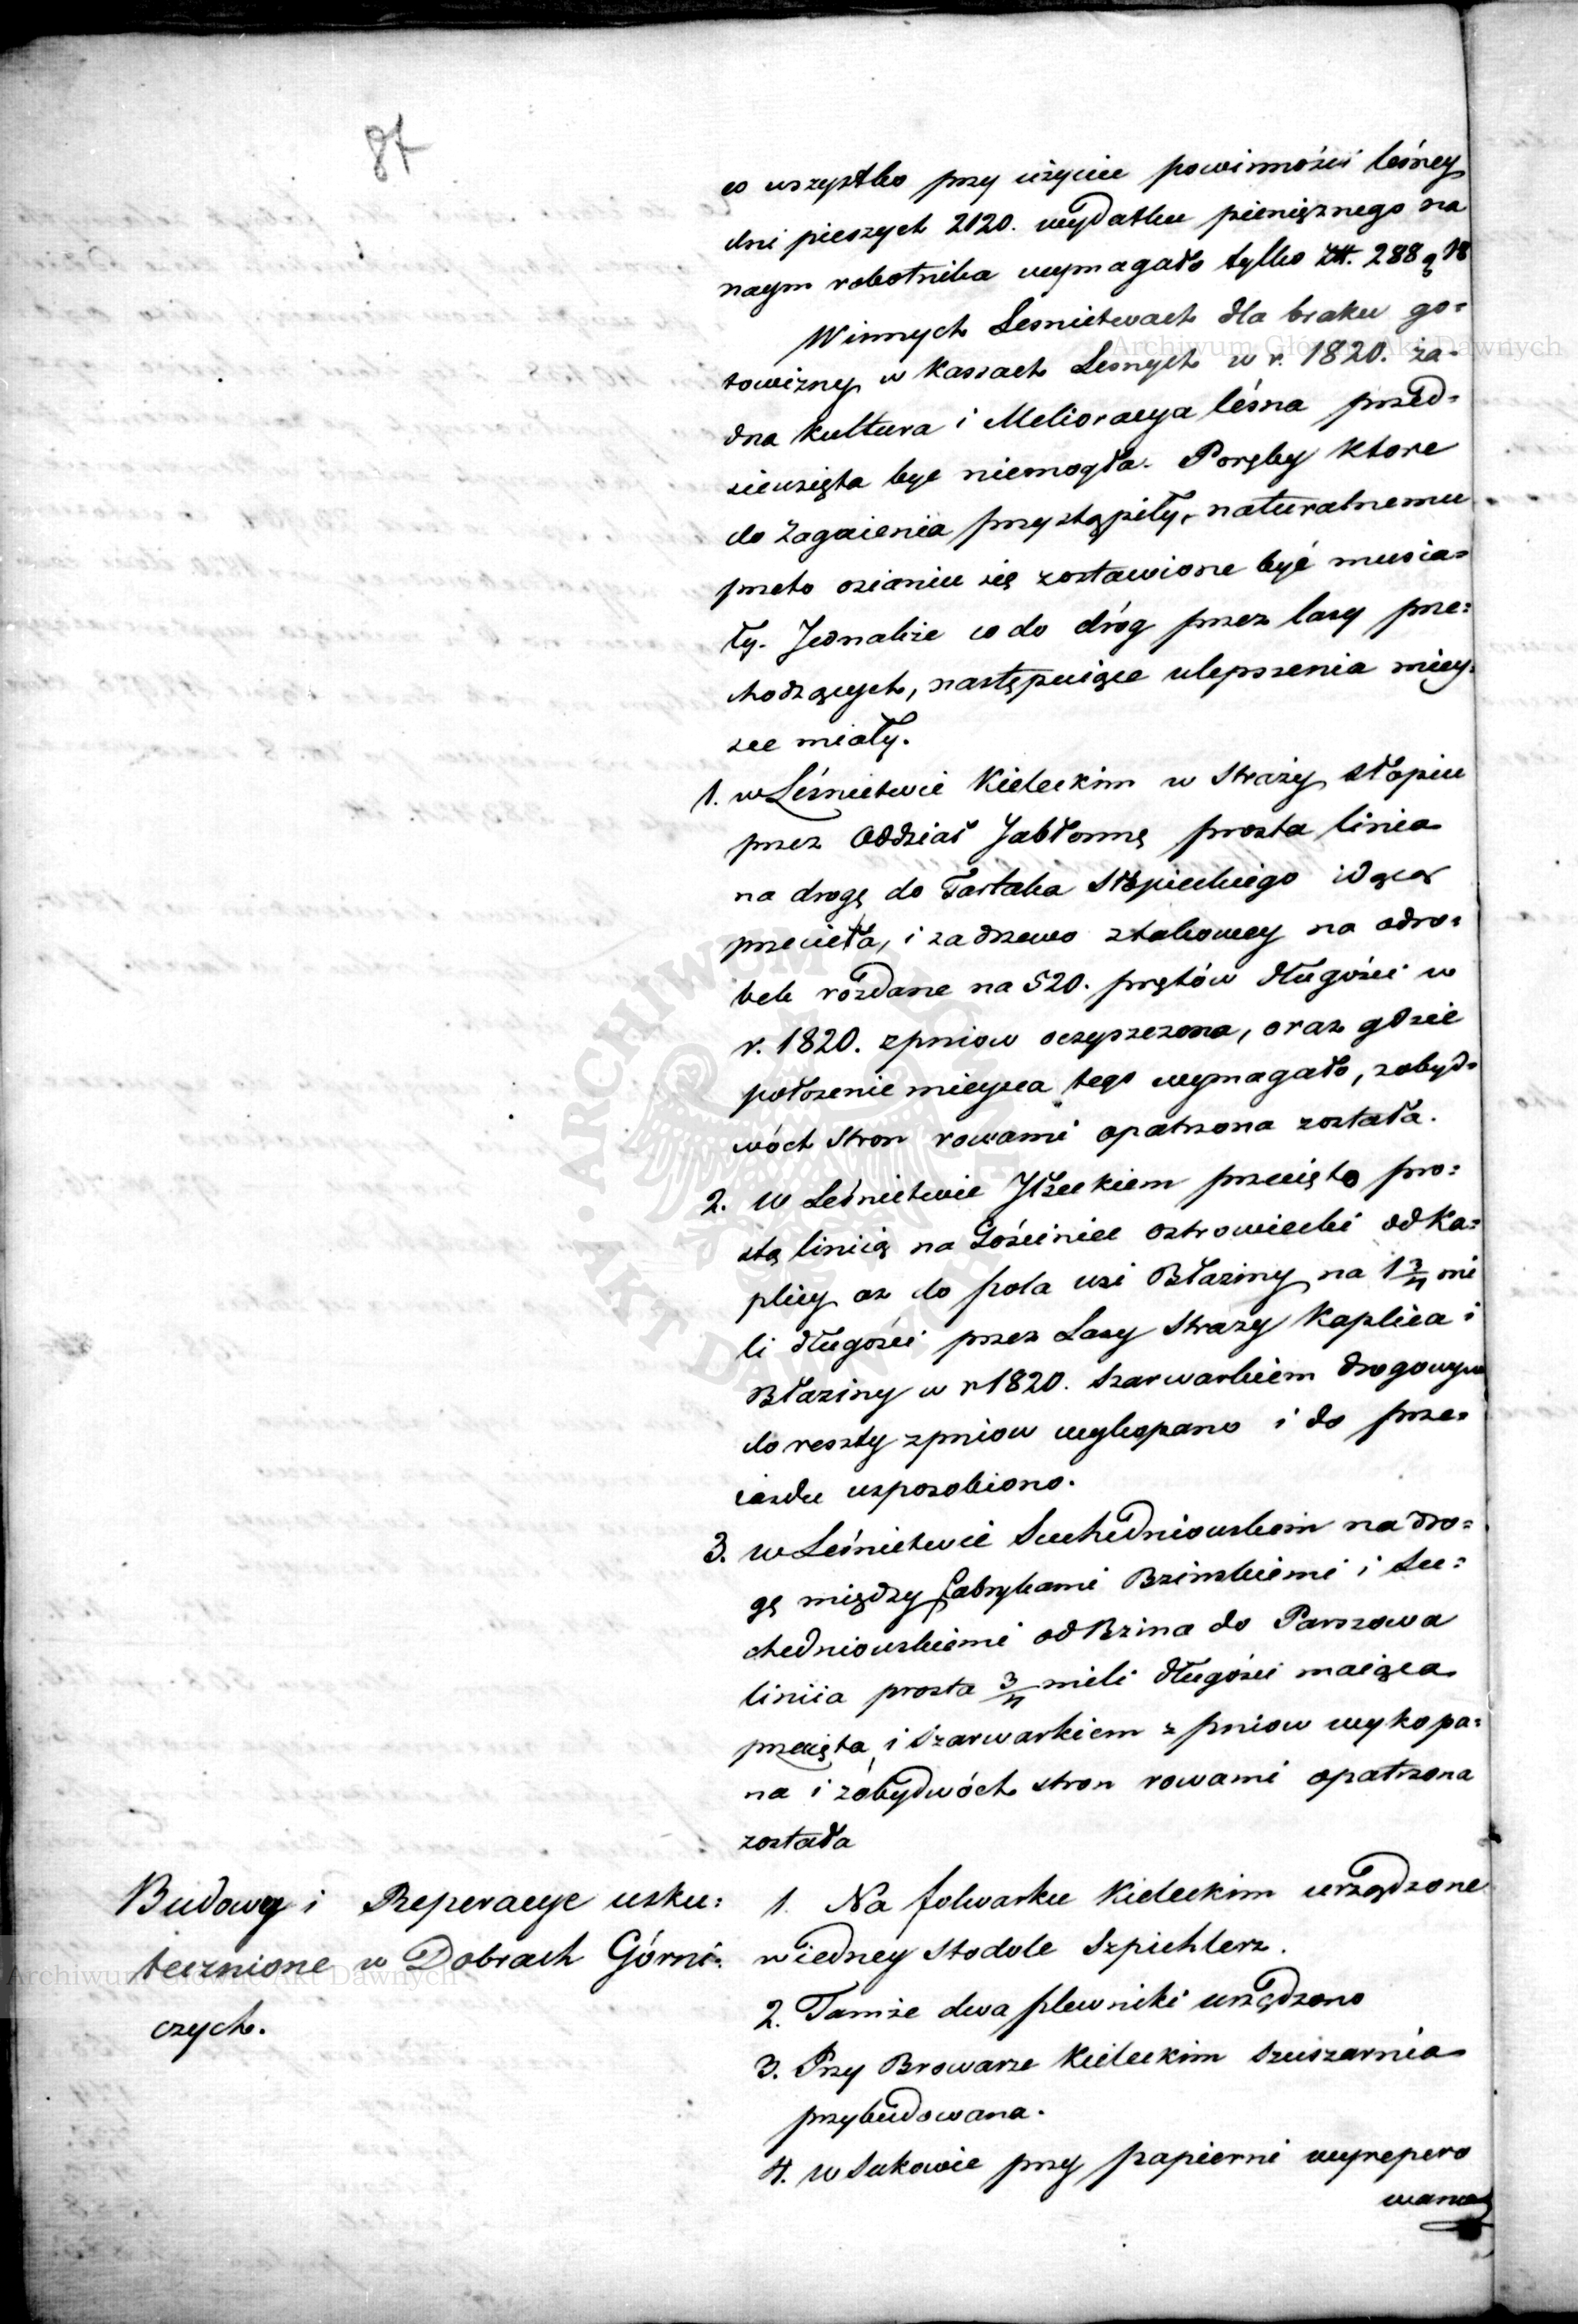 87
co wszystko przy użyciu powinności leśney
dni pieszych 2120. wydatku pieniężnego na
naym robotnika wymagało tylko Złt. 288 g 18
W innych Lesnictwach dla braku go=
towizny w Kassach Lesnych w r. 1820. ża=
dna kultura i Melioracya leśna przed=
siewzięta być niemogła. Poręby które
do Zagaienia przystąpiły, naturalnemu
przeto osianiu się zostawione być musia=
ły. Jednakże co do dróg przez lasy prze=
chodzących, następuiące ulepszenia miey=
sce miały.
1. w Leśnictwie Kieleckim w Straży Słopiu
przez Oddział Jabłonnę prosta linia
na drogę do Tartaka Słopieckiego idąca
przecięta, i za drzewo sztabowey na odro=
bek rozdane na 520. prętów długości w
r. 1820. z pniow oczyszczona, oraz gdzie
położenie mieysca tego wymagało, z obyd=
wóch stron rowami opatrzona została.
2. W Leśnictwie Iłżeckiem przecięto pro=
stą liniią na Gościniec ostrowiecki od Ka=
plicy aż do pola wsi Błaziny na 1 3/4 mi
li długości przez Lasy Strazy Kaplica i
Błaziny w r 1820. Szarwarkiem drogowym
do reszty z pniow wykopano i do prze=
iazdu usposobiono.
3. w Leśnictwie Suchedniowskim na dro=
gę między fabrykami Bzinskiemi i Su=
chedniowskiemi od Bzina do Parszowa
liniia prosta 3/4 mili długości maiąca
przecięta i Szarwarkiem z pniow wykopa=
na i z obydwóch stron rowami opatrzona
została
Budowy i Reperacye usku=
tecznione w Dobrach Górni=
czych.
1. Na folwarku Kieleckim urządzone
w iedney Stodole Szpichlerz.
2. Tamże dwa plewniki urządzono
3. Przy Browarze Kieleckim Suszarnia
przybudowana.
4. w Sukowie przy papierni wyrepero
wano
Archiwum Główne Akt Dawnych
Archiwum Główne Akt Dawnych
ARCHIWUM GŁÓWNE AKT DAWNYCH